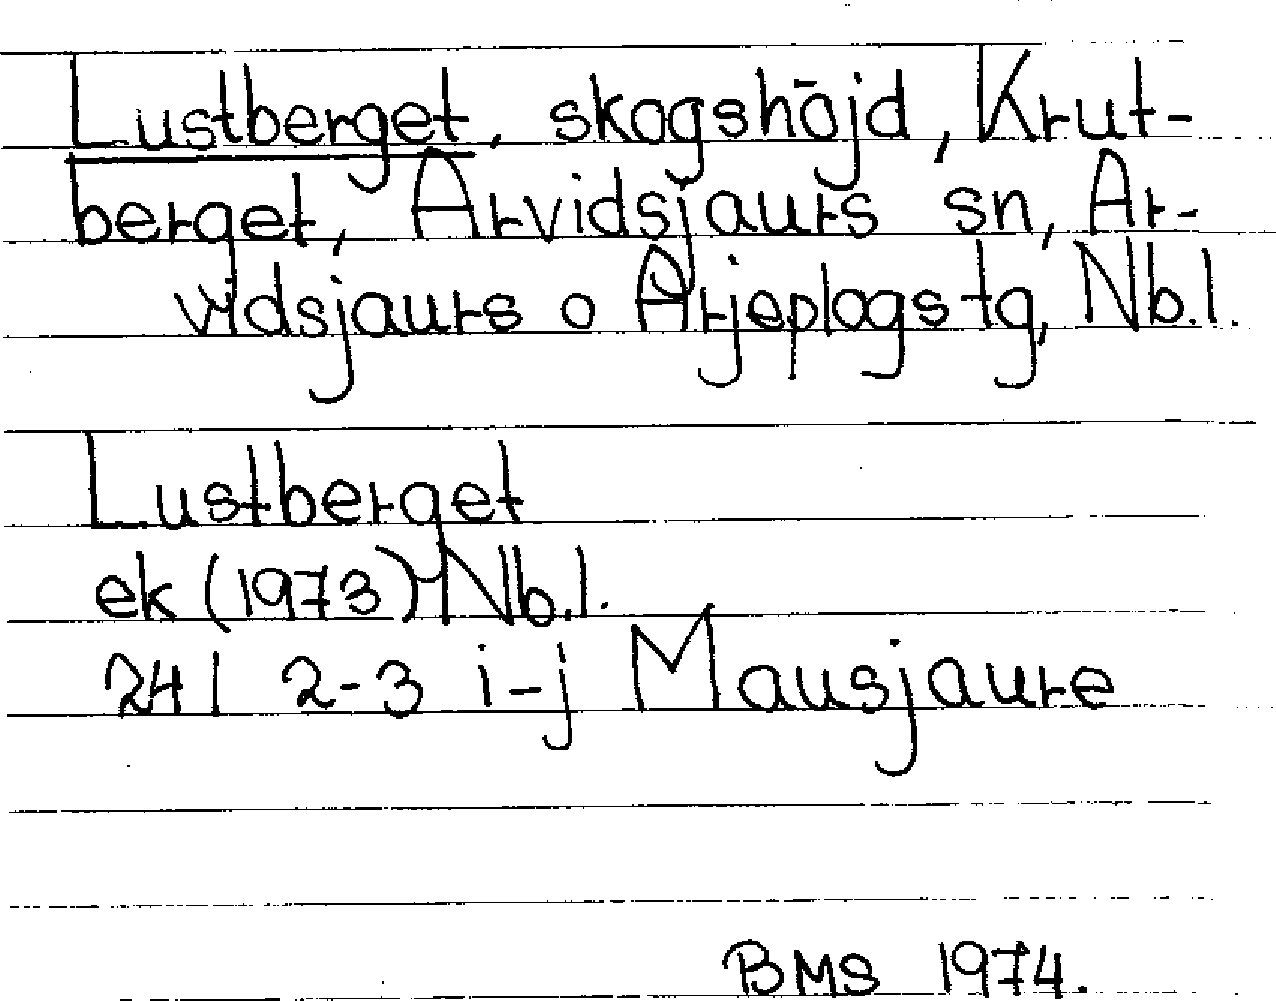 Lustberget, skogshöjd, Krut-
berget, Arvidsjaurs sn, Ar-
vidsjaurs o Arjeplogs tg, Nb.l.
Lustberget
ek (1973) Nb.l.
24 I 2-3 i-j Mausjaure
BMS 1974.